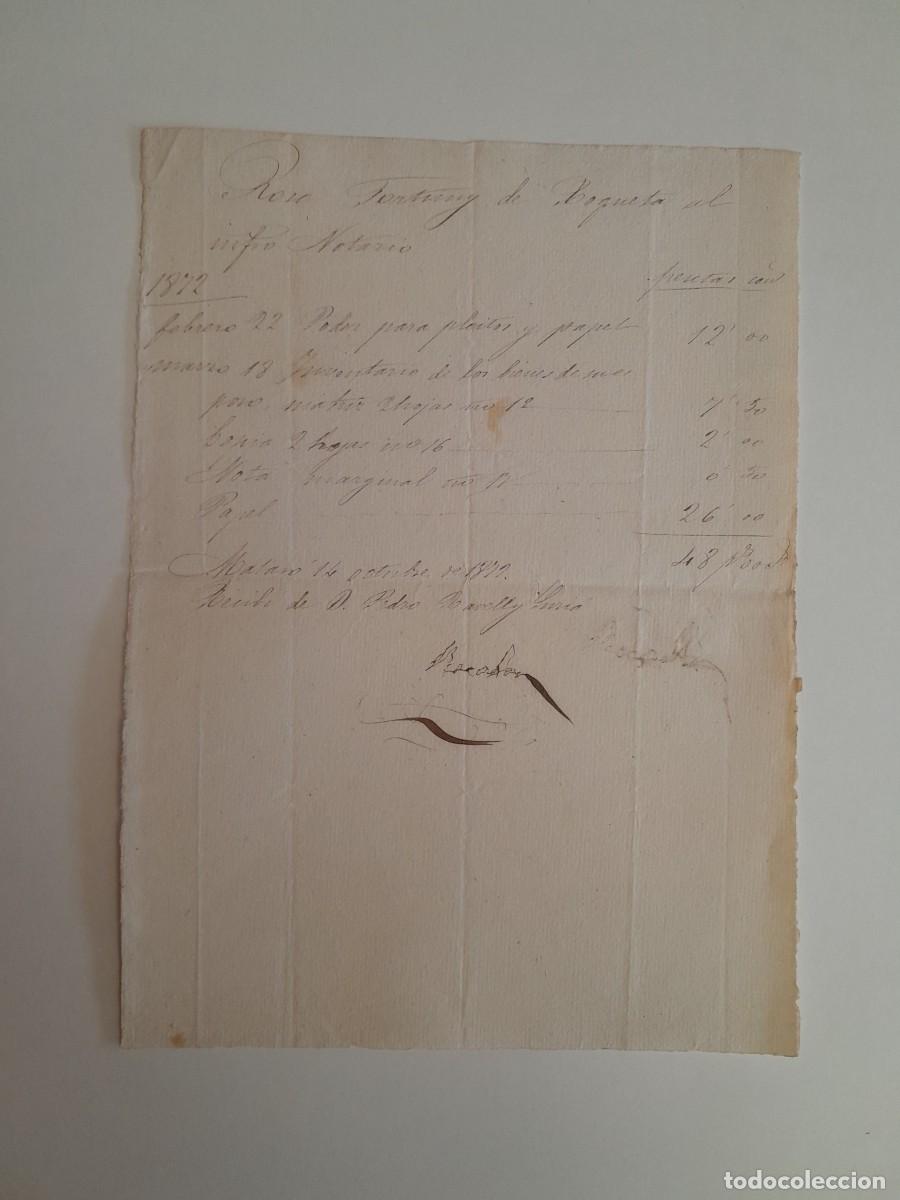 Rosa Fortuny de Roqueta al
infro Notario
1872 pesetas cen
febrero 22 Poder para pleitos y papel 12' 00
marzo 18 Inventario de los bienes de su es
poso, matriz 2 hojas no 12 7' 50
Copia 2 hojas no 16 2' 00
Nota marginal no 12 0' 50
Papel 26' 00
48
Mataró 14 octubre de 1872.
Recibí de D. Pedro
todocoleccion